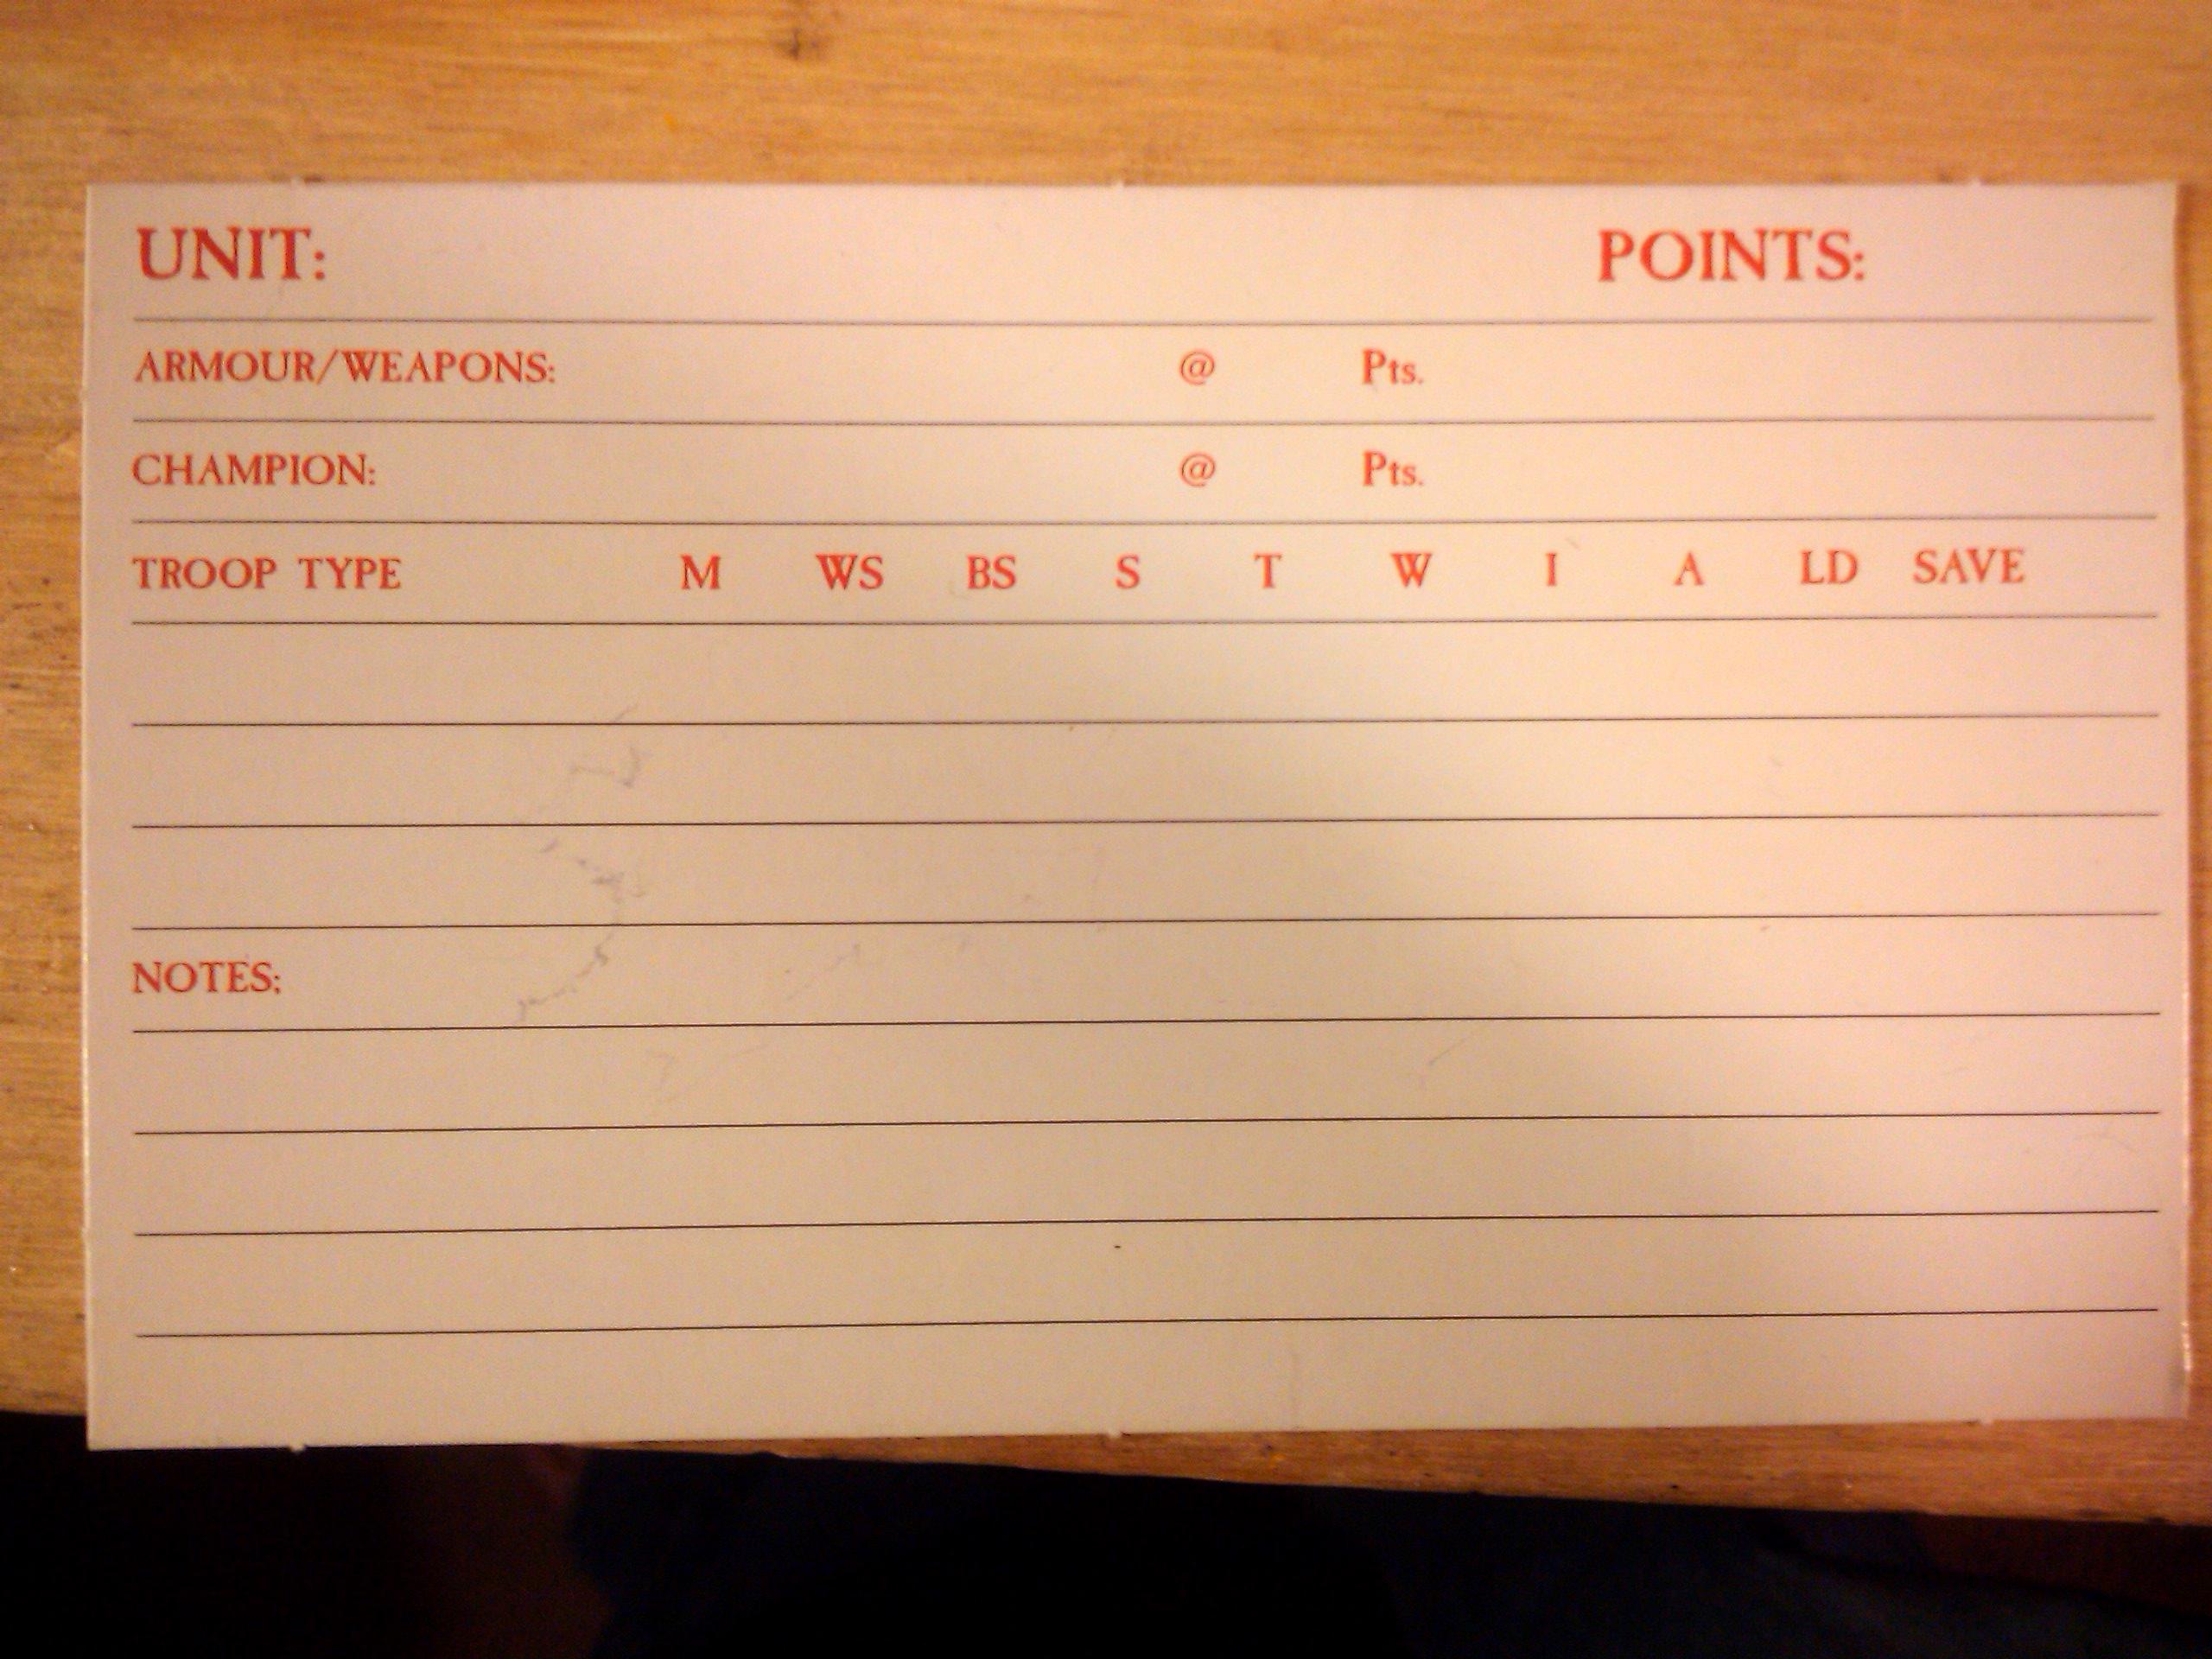 UNIT: POINTS:
ARMOUR/WEAPONS: @ Pts.
CHAMPION: @ Pts.
TROOP TYPE M WS BS S T W I A LD SAVE
NOTES: